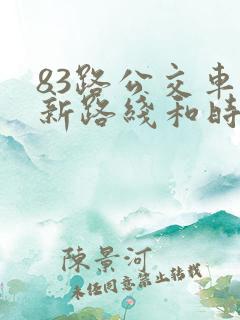 83路公交车
新路线和时
陳景河
未经同意禁止转载